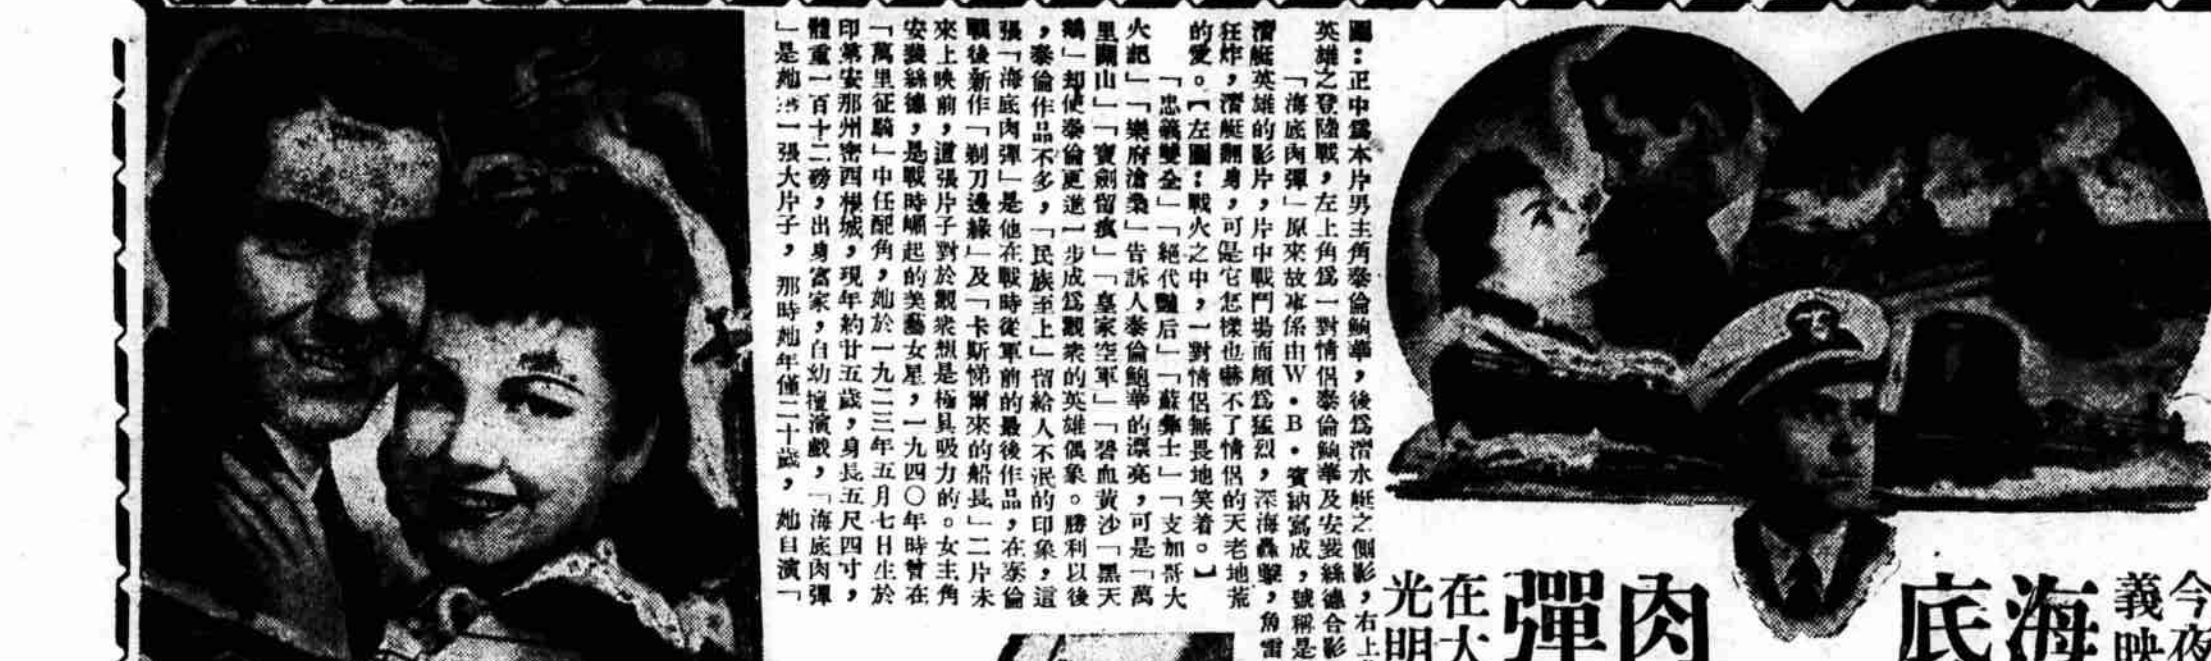 圖：正中為本片男主角泰倫鮑華，後為潛水艇之側影，右上
英雄之登陸戰，左上角為一對情侶泰倫鮑華及安裴絲德合影
「海底肉彈」原來故事係由W·B·賓納寫成，號稱是
潛艇英雄的影片，片中戰鬥場面頗為猛烈，深海轟擊，魚雷
狂炸，潛艇翻身，可是它怎樣也嚇不了情侶的天老地荒
的愛。【左圖：戰火之中，一對情侶無畏地笑着。】
「忠義雙全」「絕代豔后」「蘇彝士」「支加哥大
火記」「樂府滄桑」告訴人泰倫鮑華的漂亮，可是「萬
里關山」「寶劍留痕」「皇家空軍」「碧血黃沙「黑天
鵝」却使泰倫更進一步成為觀衆的英雄偶象。勝利以後
，泰倫作品不多，「民族至上」留給人不泯的印象，這
張「海底肉彈」是他在戰時從軍前的最後作品，在泰倫
戰後新作「剃刀邊緣」及「卡斯悌爾來的船長」二片未
來上映前，這張片子對於觀衆想是極具吸力的。女主角
安裴絲德，是戰時崛起的美藝女星，一九四〇年時曾在
「萬里征騎」中任配角，她於一九二三年五月七日生於
印第安那州密西根城，現年約廿五歲，身長五尺四寸，
體重一百十二磅，出身富家，自幼擅演戲，「海底肉彈
」是她第一張大片子，那時她年僅二十歲，她自演「
今夜
義映
海底
肉彈
在大
光明